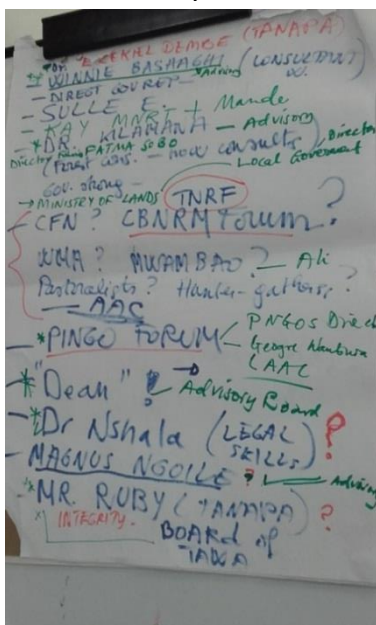 * DR. EZEKIEL DEMBE (TANAPA)
* WINNIE BASHAGHI - Advisory (CONSULTANT
- DIRECT GOV RET -
- SULLE E.
- KAY MNRT + Mande
- * DR KLAMANA - Advisory
Director FATMA SOBO Director
(Forest Cons. - now consults)
Local Government
Gov. strong -
→ MINISTRY OF LANDS TNRF
- CFN? CBNRM Forum?
WMA? MWAMBAO? - Ali
Pastoralists? Hunter-gatherers?
- AAC
- * PINGO FORUM - PNGOS Direc
- George
(AAC
- * "Dean" ! Advisory Board
- * Dr Nshala (LEGAL SKILLS) ?
- MAGNUS NGOILE ? - Advisory
* MR. RUBY (TANAPA) ?
* INTEGRITY.
BOARD of
TAWA